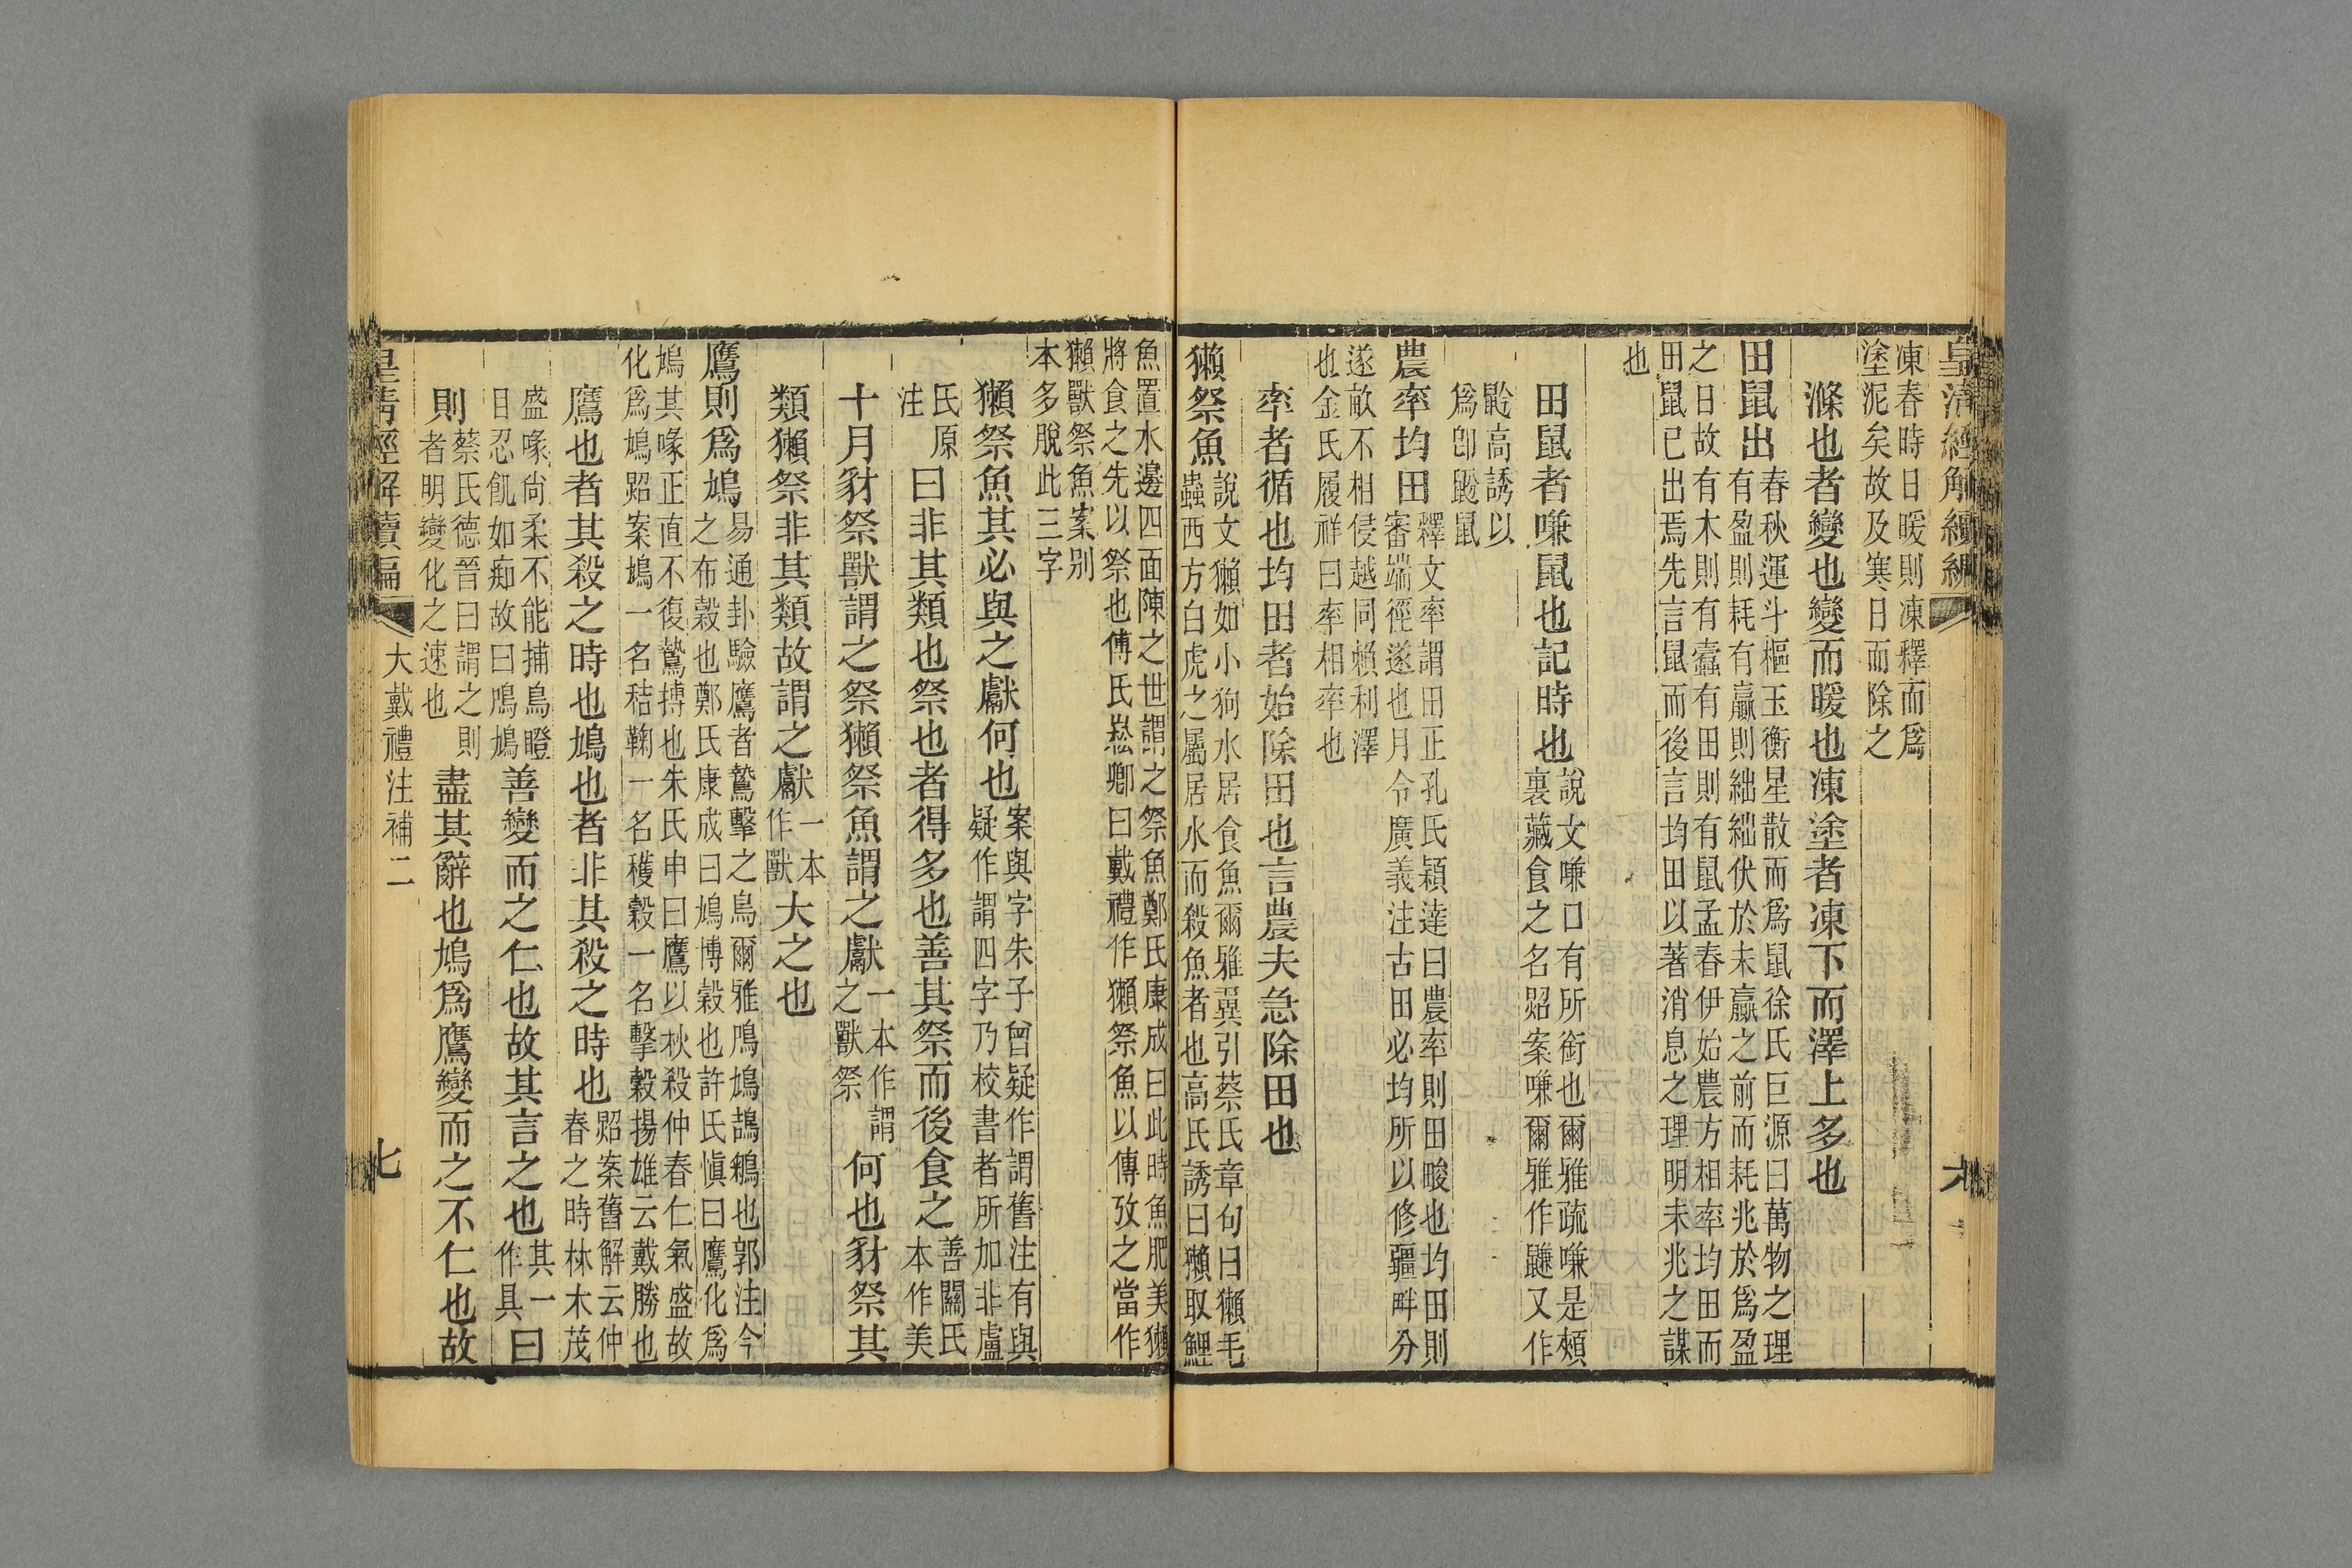 皇清經解續編
六
凍春時日暖則凍釋而爲
塗泥矣故及寒日而除之
滌也者變也變而暖也凍塗者凍下而澤上多也
田鼠出
春秋運斗樞玉衡星散而爲鼠徐氏巨源曰萬物之理
有盈則耗有贏則絀絀伏於未贏之前而耗兆於爲盈
之日故有木則有蠹有田則有鼠孟春伊始農方相率均田而
田鼠已出焉先言鼠而後言均田以著消息之理明未兆之謀
也
田鼠者嗛鼠也記時也
說文嗛口有所銜也爾雅疏嗛是頰
裏藏食之名𡖖案嗛爾雅作鼸又作
鼢高誘以
爲卽鼢鼠
農率均田
釋文率謂田正孔氏穎達曰農率則田畯也均田則
審端徑遂也月令廣義注古田必均所以修疆畔分
遂畝不相侵越同賴利澤
也金氏履祥曰率相率也
率者循也均田者始除田也言農夫急除田也
獺祭魚
說文獺如小狗水居食魚爾雅翼引蔡氏章句曰獺毛
蟲西方白虎之屬居水而殺魚者也高氏誘曰獺取鯉
魚置水邊四面陳之世謂之祭魚鄭氏康成曰此時魚肥美獺
將食之先以祭也傅氏崧卿曰戴禮作獺祭魚以傳攷之當作
獺獸祭魚案别
本多脫此三字
獺祭魚其必與之獻何也
案與字朱子曾疑作謂舊注有與
疑作謂四字乃校書者所加非盧
氏原
注
曰非其類也祭也者得多也善其祭而後食之
善關氏
本作美
十月豺祭獸謂之祭獺祭魚謂之獻
一本作謂
之獸祭
何也豺祭其
類獺祭非其類故謂之獻
一本
作獸
大之也
鷹則爲鳩
易通卦驗鷹者鷙擊之鳥爾雅鳲鳩鵠鵴也郭注今
之布穀也鄭氏康成曰鳩博穀也許氏愼曰鷹化爲
鳩其喙正直不復鷙搏也朱氏申曰鷹以秋殺仲春仁氣盛故
化爲鳩案鳩一名秸鞠一名穫穀一名擊穀揚雄云戴勝也
鷹也者其殺之時也鳩也者非其殺之時也
案舊解云仲
春之時林木茂
盛喙尙柔不能捕鳥瞪
目忍飢如痴故曰鳲鳩
善變而之仁也故其言之也
其一
作具
曰
則
蔡氏德晉曰謂之則
者明變化之速也
盡其辭也鳩爲鷹變而之不仁也故
皇清經解續編
大戴禮注補二
七